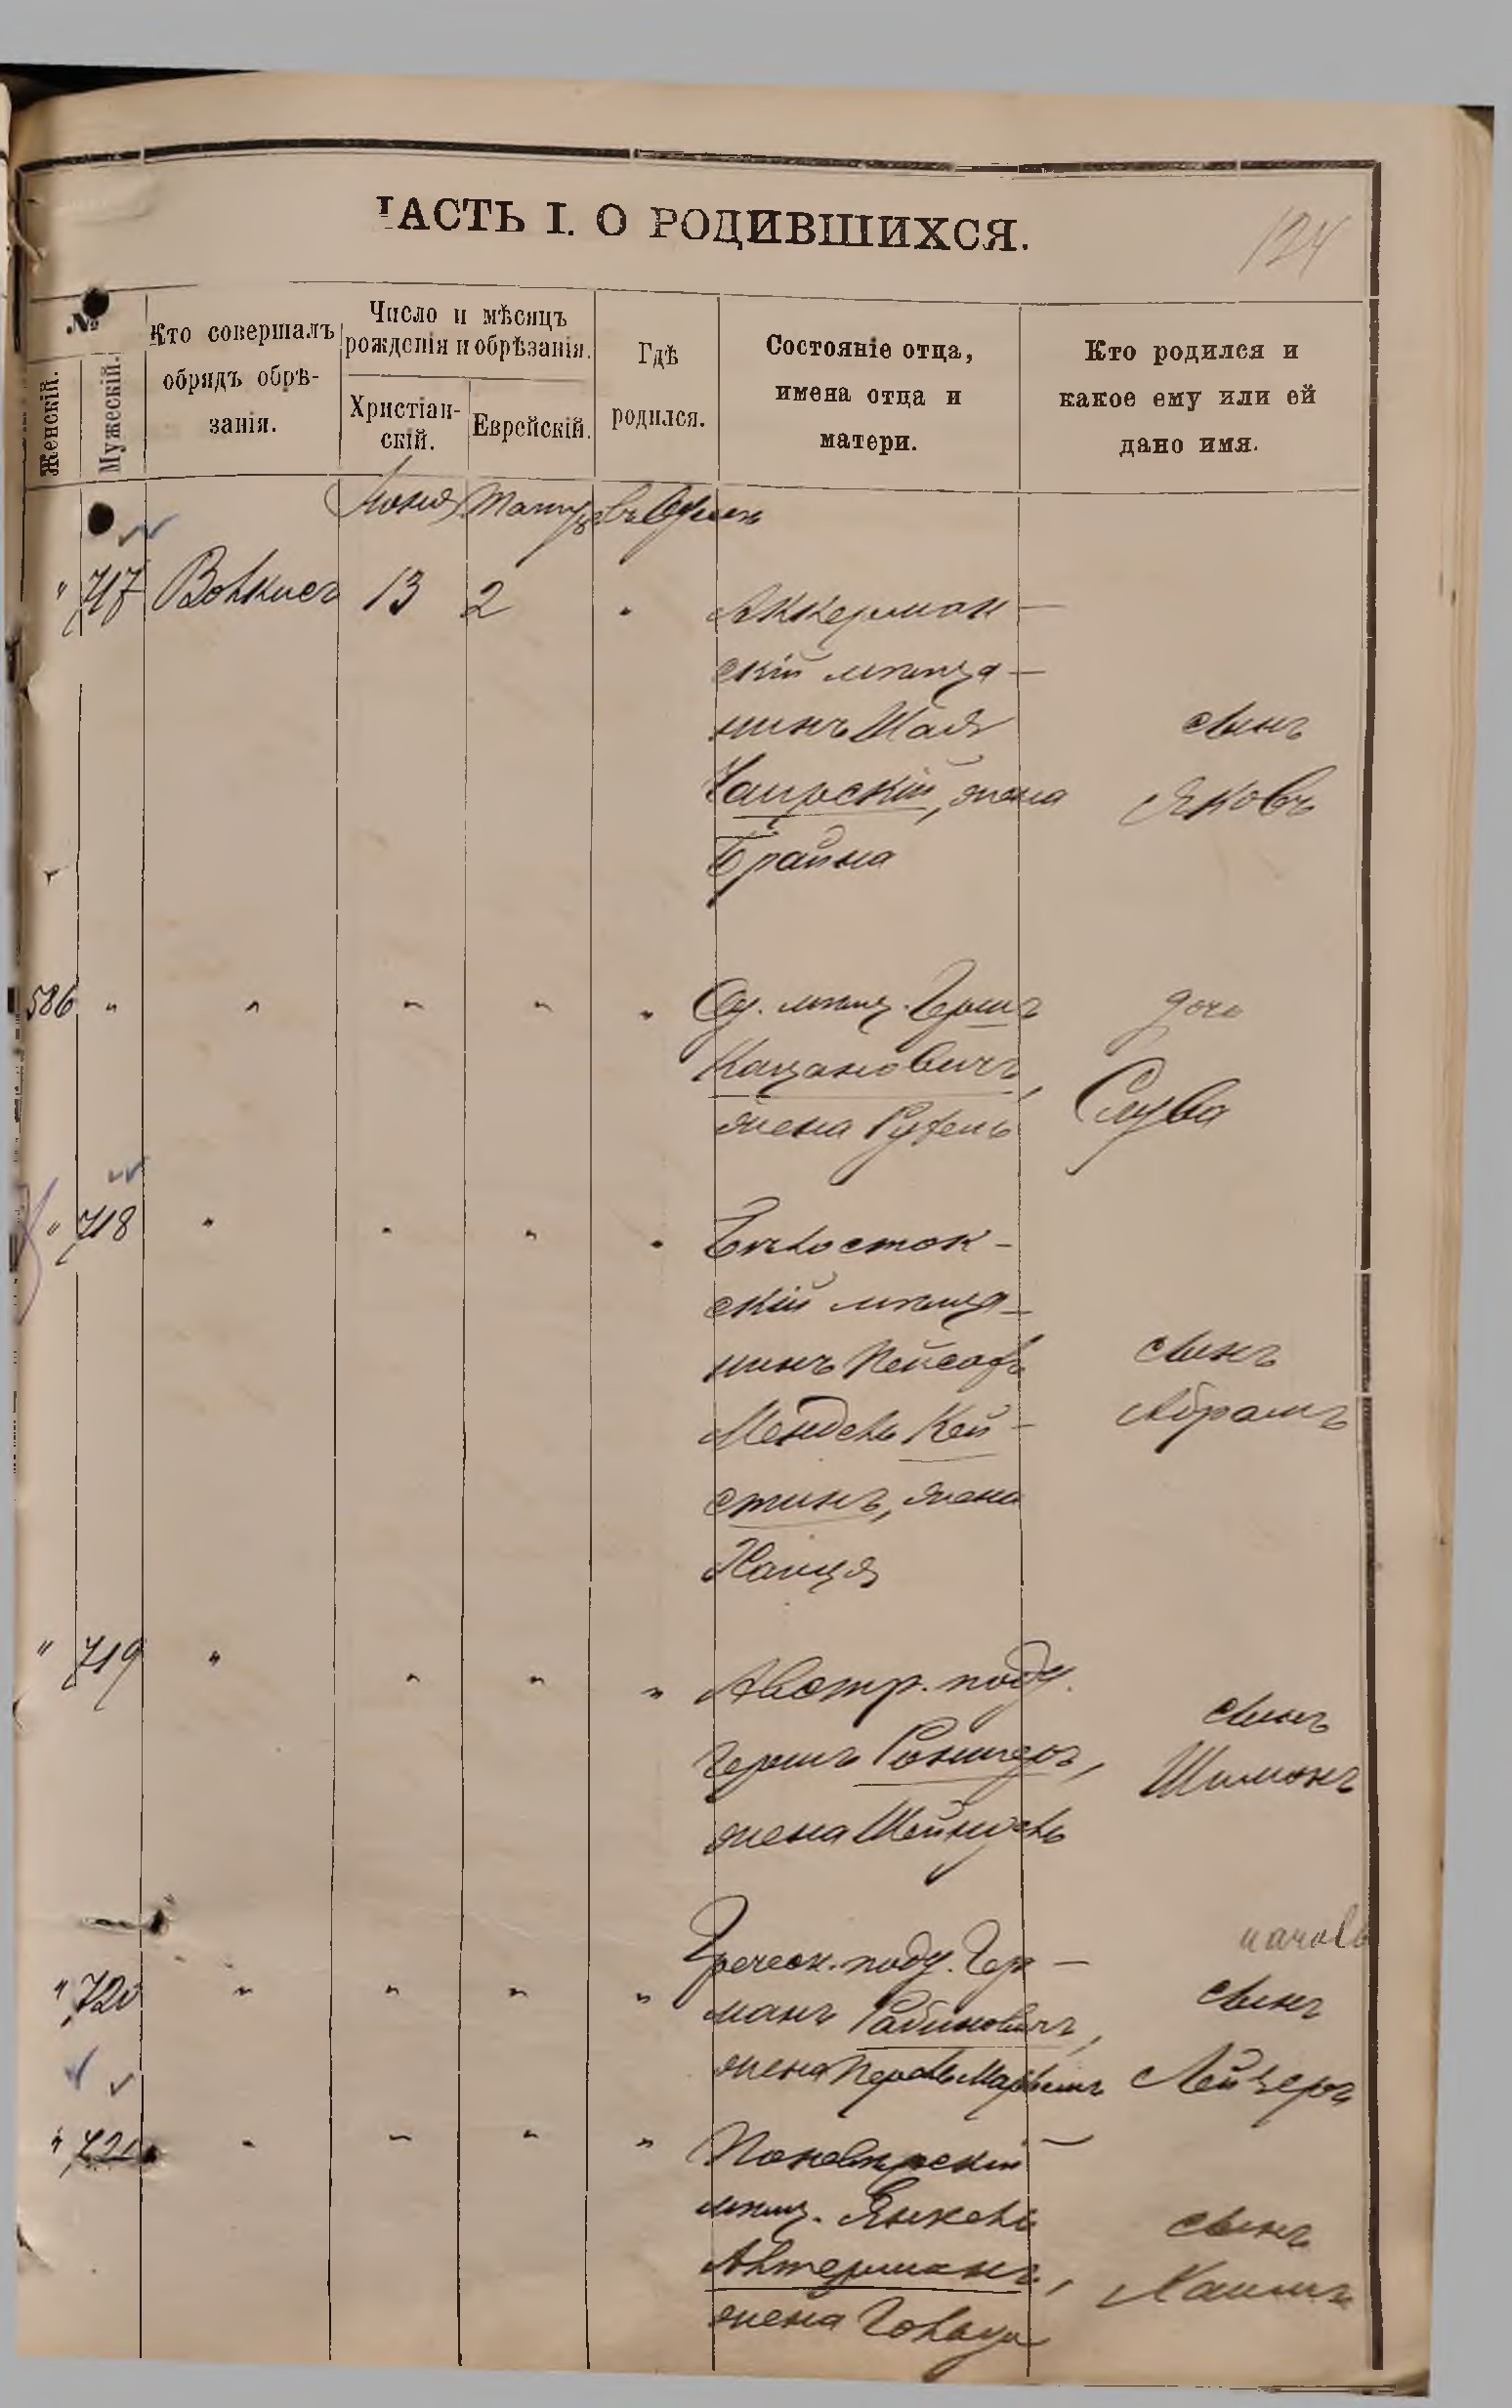 ЧАСТЬ I. О РОДИВШИХСЯ.
124
№
Женскій.
Мужескій.
Кто совершалъ
обрядъ обрѣ-
занія.
Число и мѣсяцъ
рожденія и обрѣзанія.
Христіан-
скій.
Еврейскій.
Гдѣ
родился.
Состояніе отца,
имена отца и
матери.
Кто родился и
какое ему или ей
дано имя.
Іюня Тамузъ въ Одессѣ
" 717 Волкисъ 13 2 "
Аккерман-
скій мѣща-
нинъ Шая
Каирскій, жена
Брайна
сынъ
Яковъ
586 " " " " "
Од. мѣщ. Гершъ
Кацановичъ,
жена Рухель
дочь
Слува
" 718 " " " "
Бѣлосток-
скій мѣща-
нинъ Пейсахъ
Мендель Кей-
стинъ, жена
Ханця
сынъ
Абрамъ
" 719 " " " "
Австр. подд.
Гершъ,
жена Шейндель
сынъ
Шимонъ
" 720 " " " "
Греческ. подд. Гер-
манъ Рабиновичъ,
жена Перль
сынъ
Лейзеръ
" 721 " " " "
Поневѣжскій
мѣщ. Янкель
Альтерманъ,
жена Голда
сынъ
Хаимъ